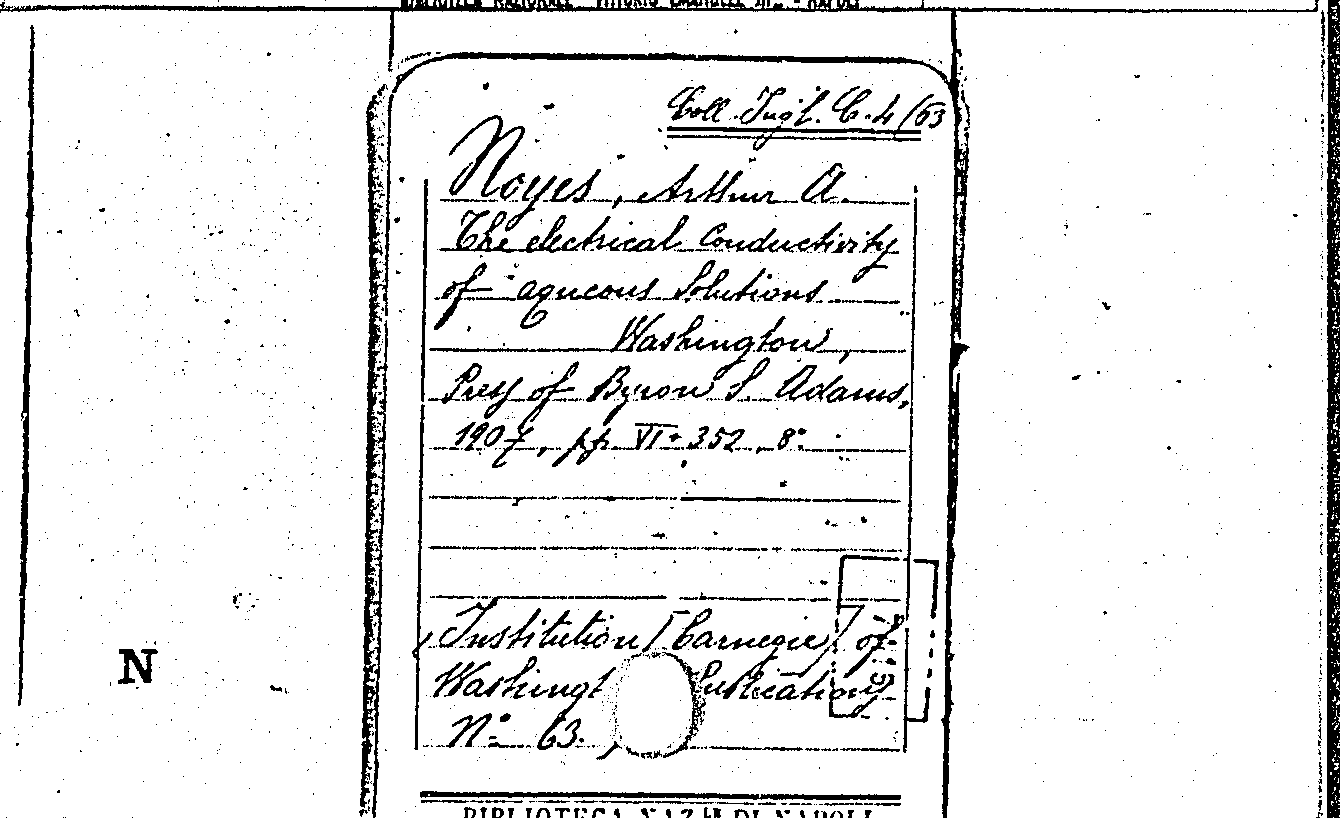 BIBLIOTECA NAZIONALE "VITTORIO EMANUELE III" - NAPOLI
Coll. Ingl. C. 4/63
Noyes, Arthur A.
The electrical conductivity
of aqueous Solutions
Washington,
Press of Byron S. Adams,
1907, pp. VI+352, 8°.
Institution [Carnegie] of
Washingt Publication
N.° 63.
N
BIBLIOTECA NAZ.LE DI NAPOLI